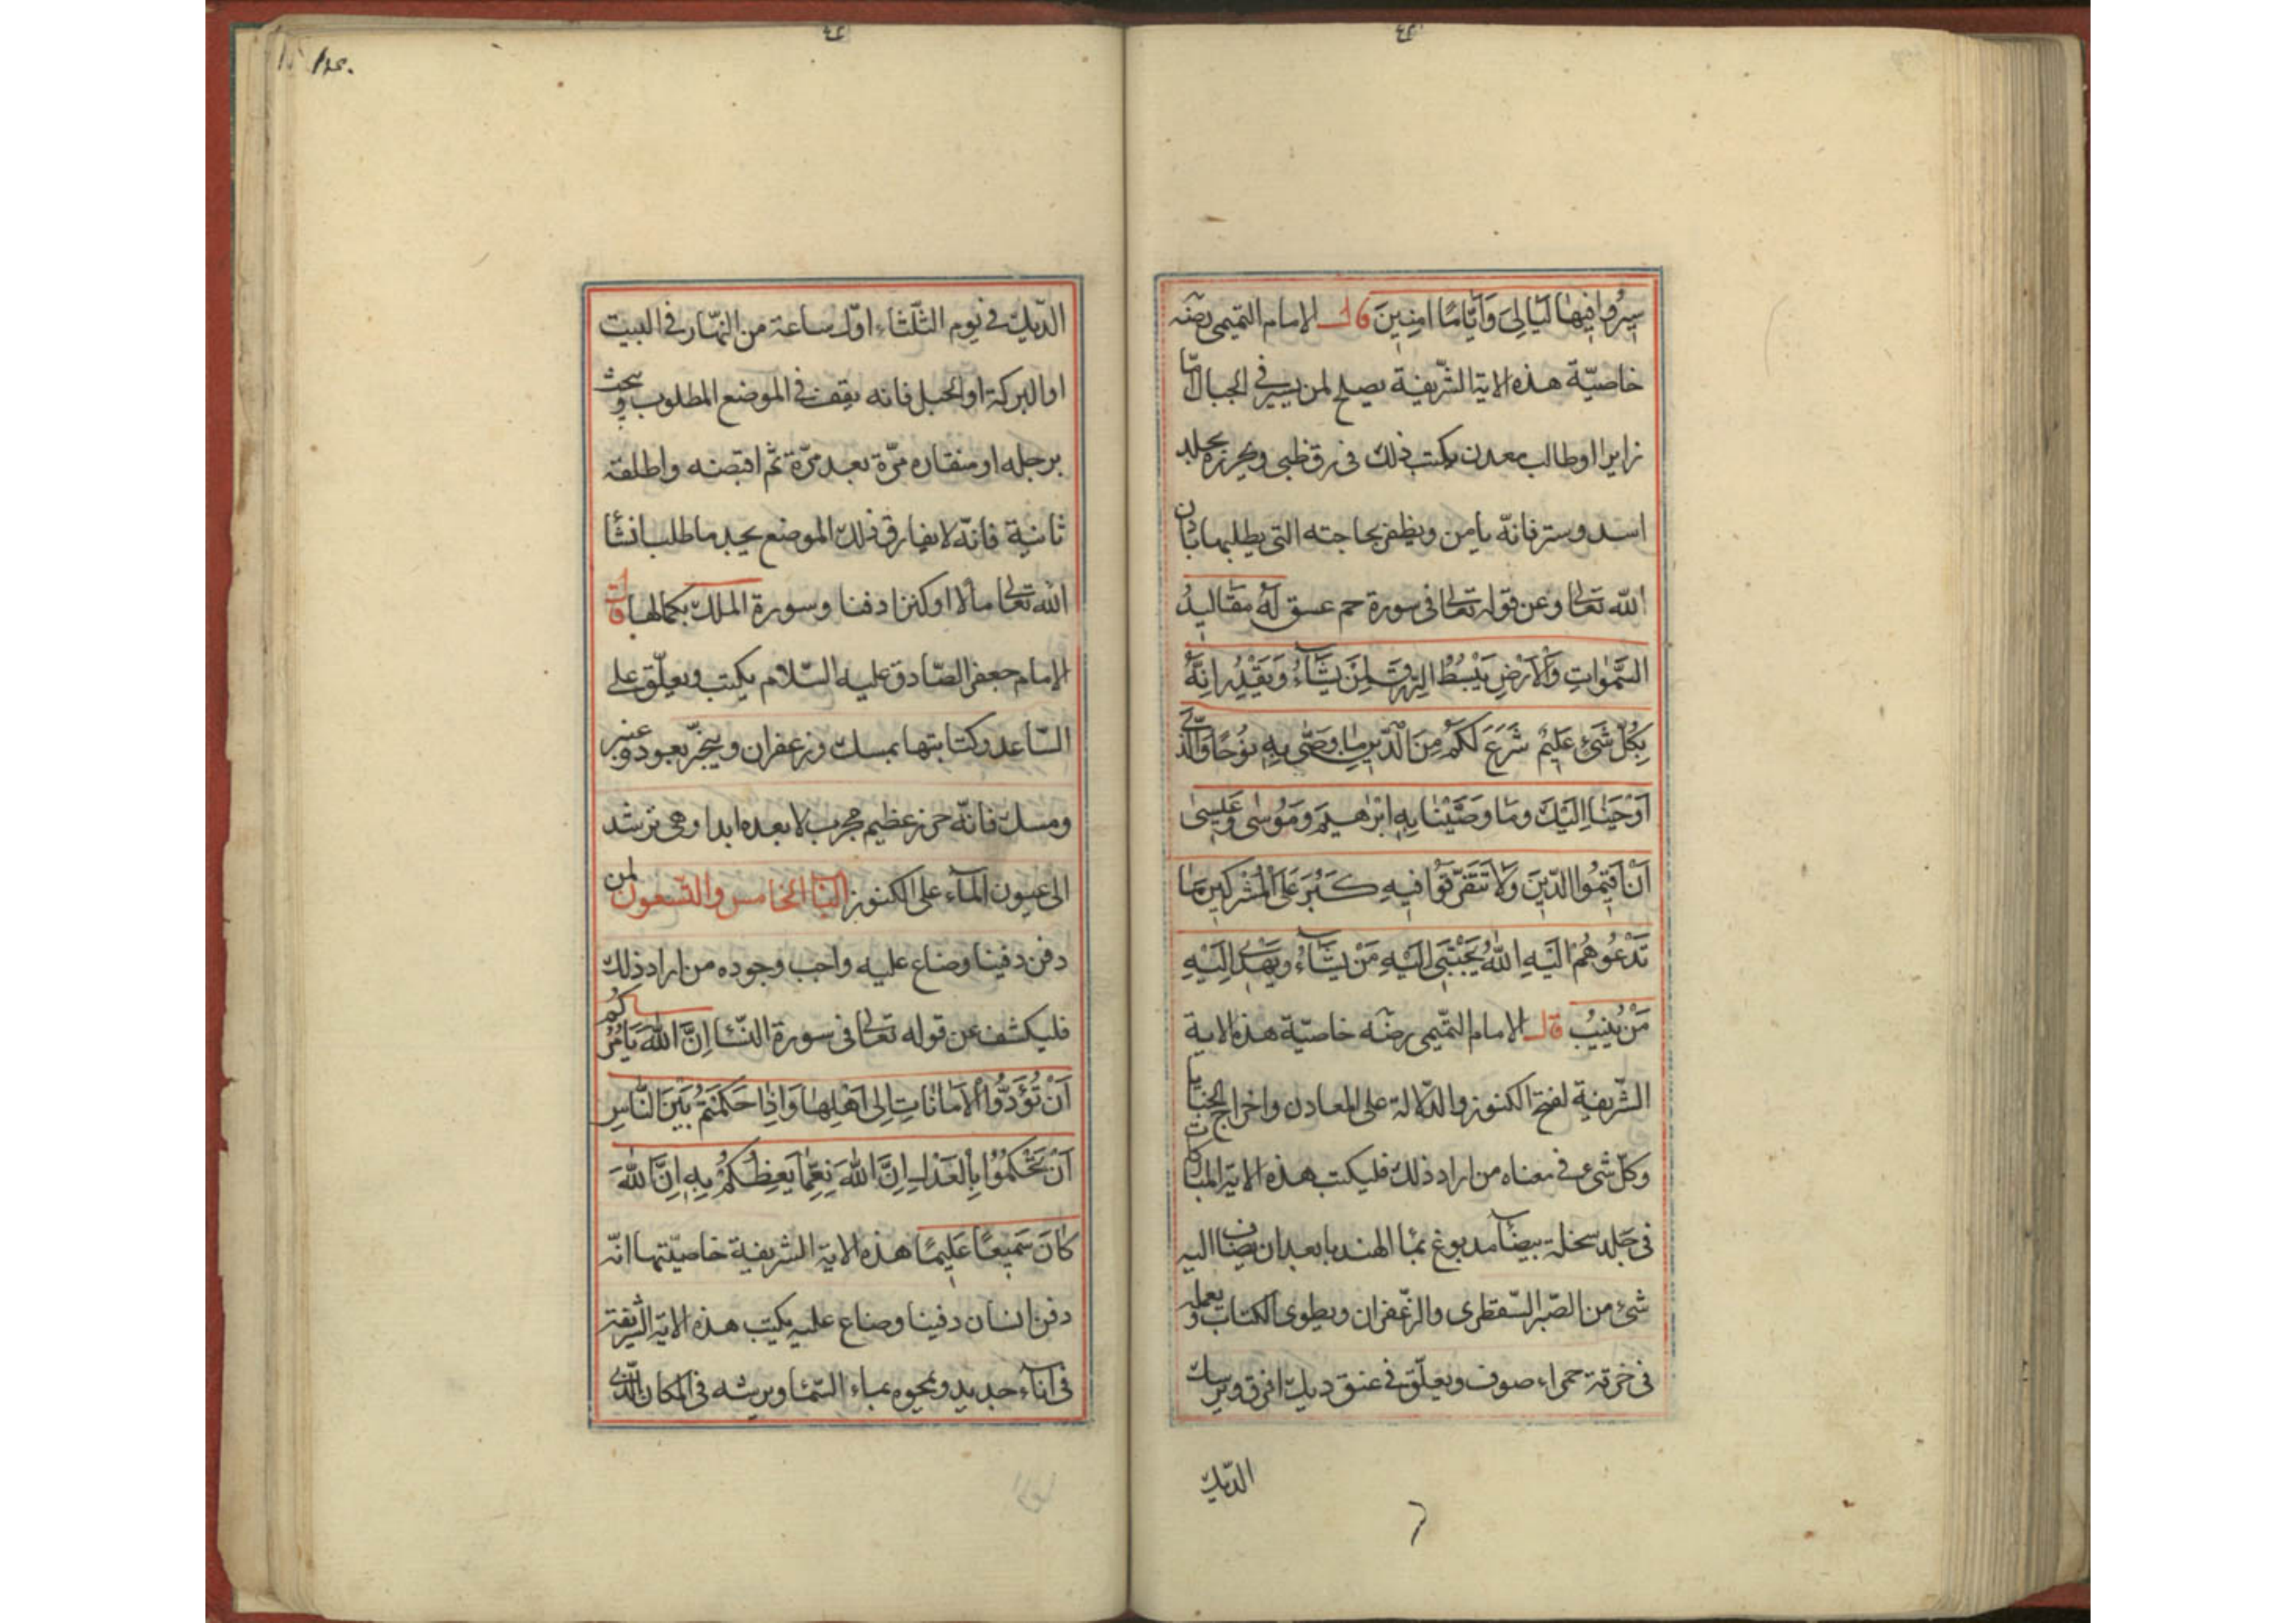 سِيرُوا فِيهَا لَيَالِىَ وَأَيَّامًا اٰمِنِينَ قال الامام التميمى رضه
خاصيّة هذه الاية الشّريفة يصلح لمن يسير فى الجبال امّا
زايرا او طالب معدن يكتب ذلك فى رق ظبى ويحرزه بجلد
اسد وستر فانّه يامن ويظفر بحاجته التى يطلبها باذن
اللّه تعالى وعن قوله تعالى فى سورة حم عسق لَهُ مَقَالِيدُ
السَّمٰوَاتِ وَالْاَرْضِ يَبْسُطُ الرِّزْقَ لِمَنْ يَشَآءُ وَيَقْدِرُ اِنَّهُ
بِكُلِّ شَىْءٍ عَلِيمٌ شَرَعَ لَكُمْ مِنَ الدِّينِ مَا وَصّٰى بِهِ نُوحًا وَالَّذِى
اَوْحَيْنَا اِلَيْكَ وَمَا وَصَّيْنَا بِهِ اِبْرٰهِيمَ وَمُوسٰى وَعِيسٰى
اَنْ اَقِيمُوا الدِّينَ وَلَا تَتَفَرَّقُوا فِيهِ كَبُرَ عَلَى الْمُشْرِكِينَ مَا
تَدْعُوهُمْ اِلَيْهِ اَللّٰهُ يَجْتَبِى اِلَيْهِ مَنْ يَشَآءُ وَيَهْدِى اِلَيْهِ
مَنْ يُنِيبُ قال الامام التّميمى رضه خاصيّة هذه الاية
الشّريفة لفتح الكنوز والدّلالة على المعادن واخراج الخبايا
وكلّ شىء فى معناه من اراد ذلك فليكتب هذه الاية المباركات
فى جلد سخلة بيضآ مدبوغ بمآ الهندبا بعد ان يضاف اليه
شئ من الصّبر السّقطرى والزّعفران ويطوى الكتاب ويعمله
فى خرقة حمراء صوف ويعلّق فى عنق ديك افرق ويرسل
الدّيك
الدّيك فى يوم الثّلثاء اوّل ساعة من النّهار فى البيت
او البركة او الجبل فانه يقف فى الموضع المطلوب ويبحث
برجله او منقاره مرّة بعد مرّة ثم اقبضه واطلقه
ثانية فانّه لا يفارق ذلك الموضع يجد ما طلب انشأ
اللّه تعالى مالا او كنزا دفنا وسورة الملك بكمالها قال
الامام جعفر الصّادق عليه السّلام يكتب ويعلّق على
السّاعد وكتابتها بمسك وزعفران ويبخّر بعود وعنبر
ومسك فانّه حرز عظيم مجرب لا بعده ابدا وهى ترشد
الى عيون المآء على الكنوز البا الخامس والتسعون لمن
دفن دفينا وضاع عليه واحب وجوده من اراد ذلك
فليكشف عن قوله تعالى فى سورة النّسا اِنَّ اللّٰهَ يَأمُرُكُمْ
اَنْ تُؤَدُّوا الْاَمَانَاتِ اِلٰى اَهْلِهَا وَاِذَا حَكَمْتُمْ بَيْنَ النَّاسِ
اَنْ تَحْكُمُوا بِالْعَدْلِ اِنَّ اللّٰهَ نِعِمَّا يَعِظُكُمْ بِهِ اِنَّ اللّٰهَ
كَانَ سَمِيعًا عَلِيمًا هذه الاية الشريفة خاصيّتها انّه
دفن انسان دفينا وضاع عليه يكتب هذه الاية الشّريفة
فى اناء جديد ويمحوه بماء السّمآ ويرشه فى المكان الّذى